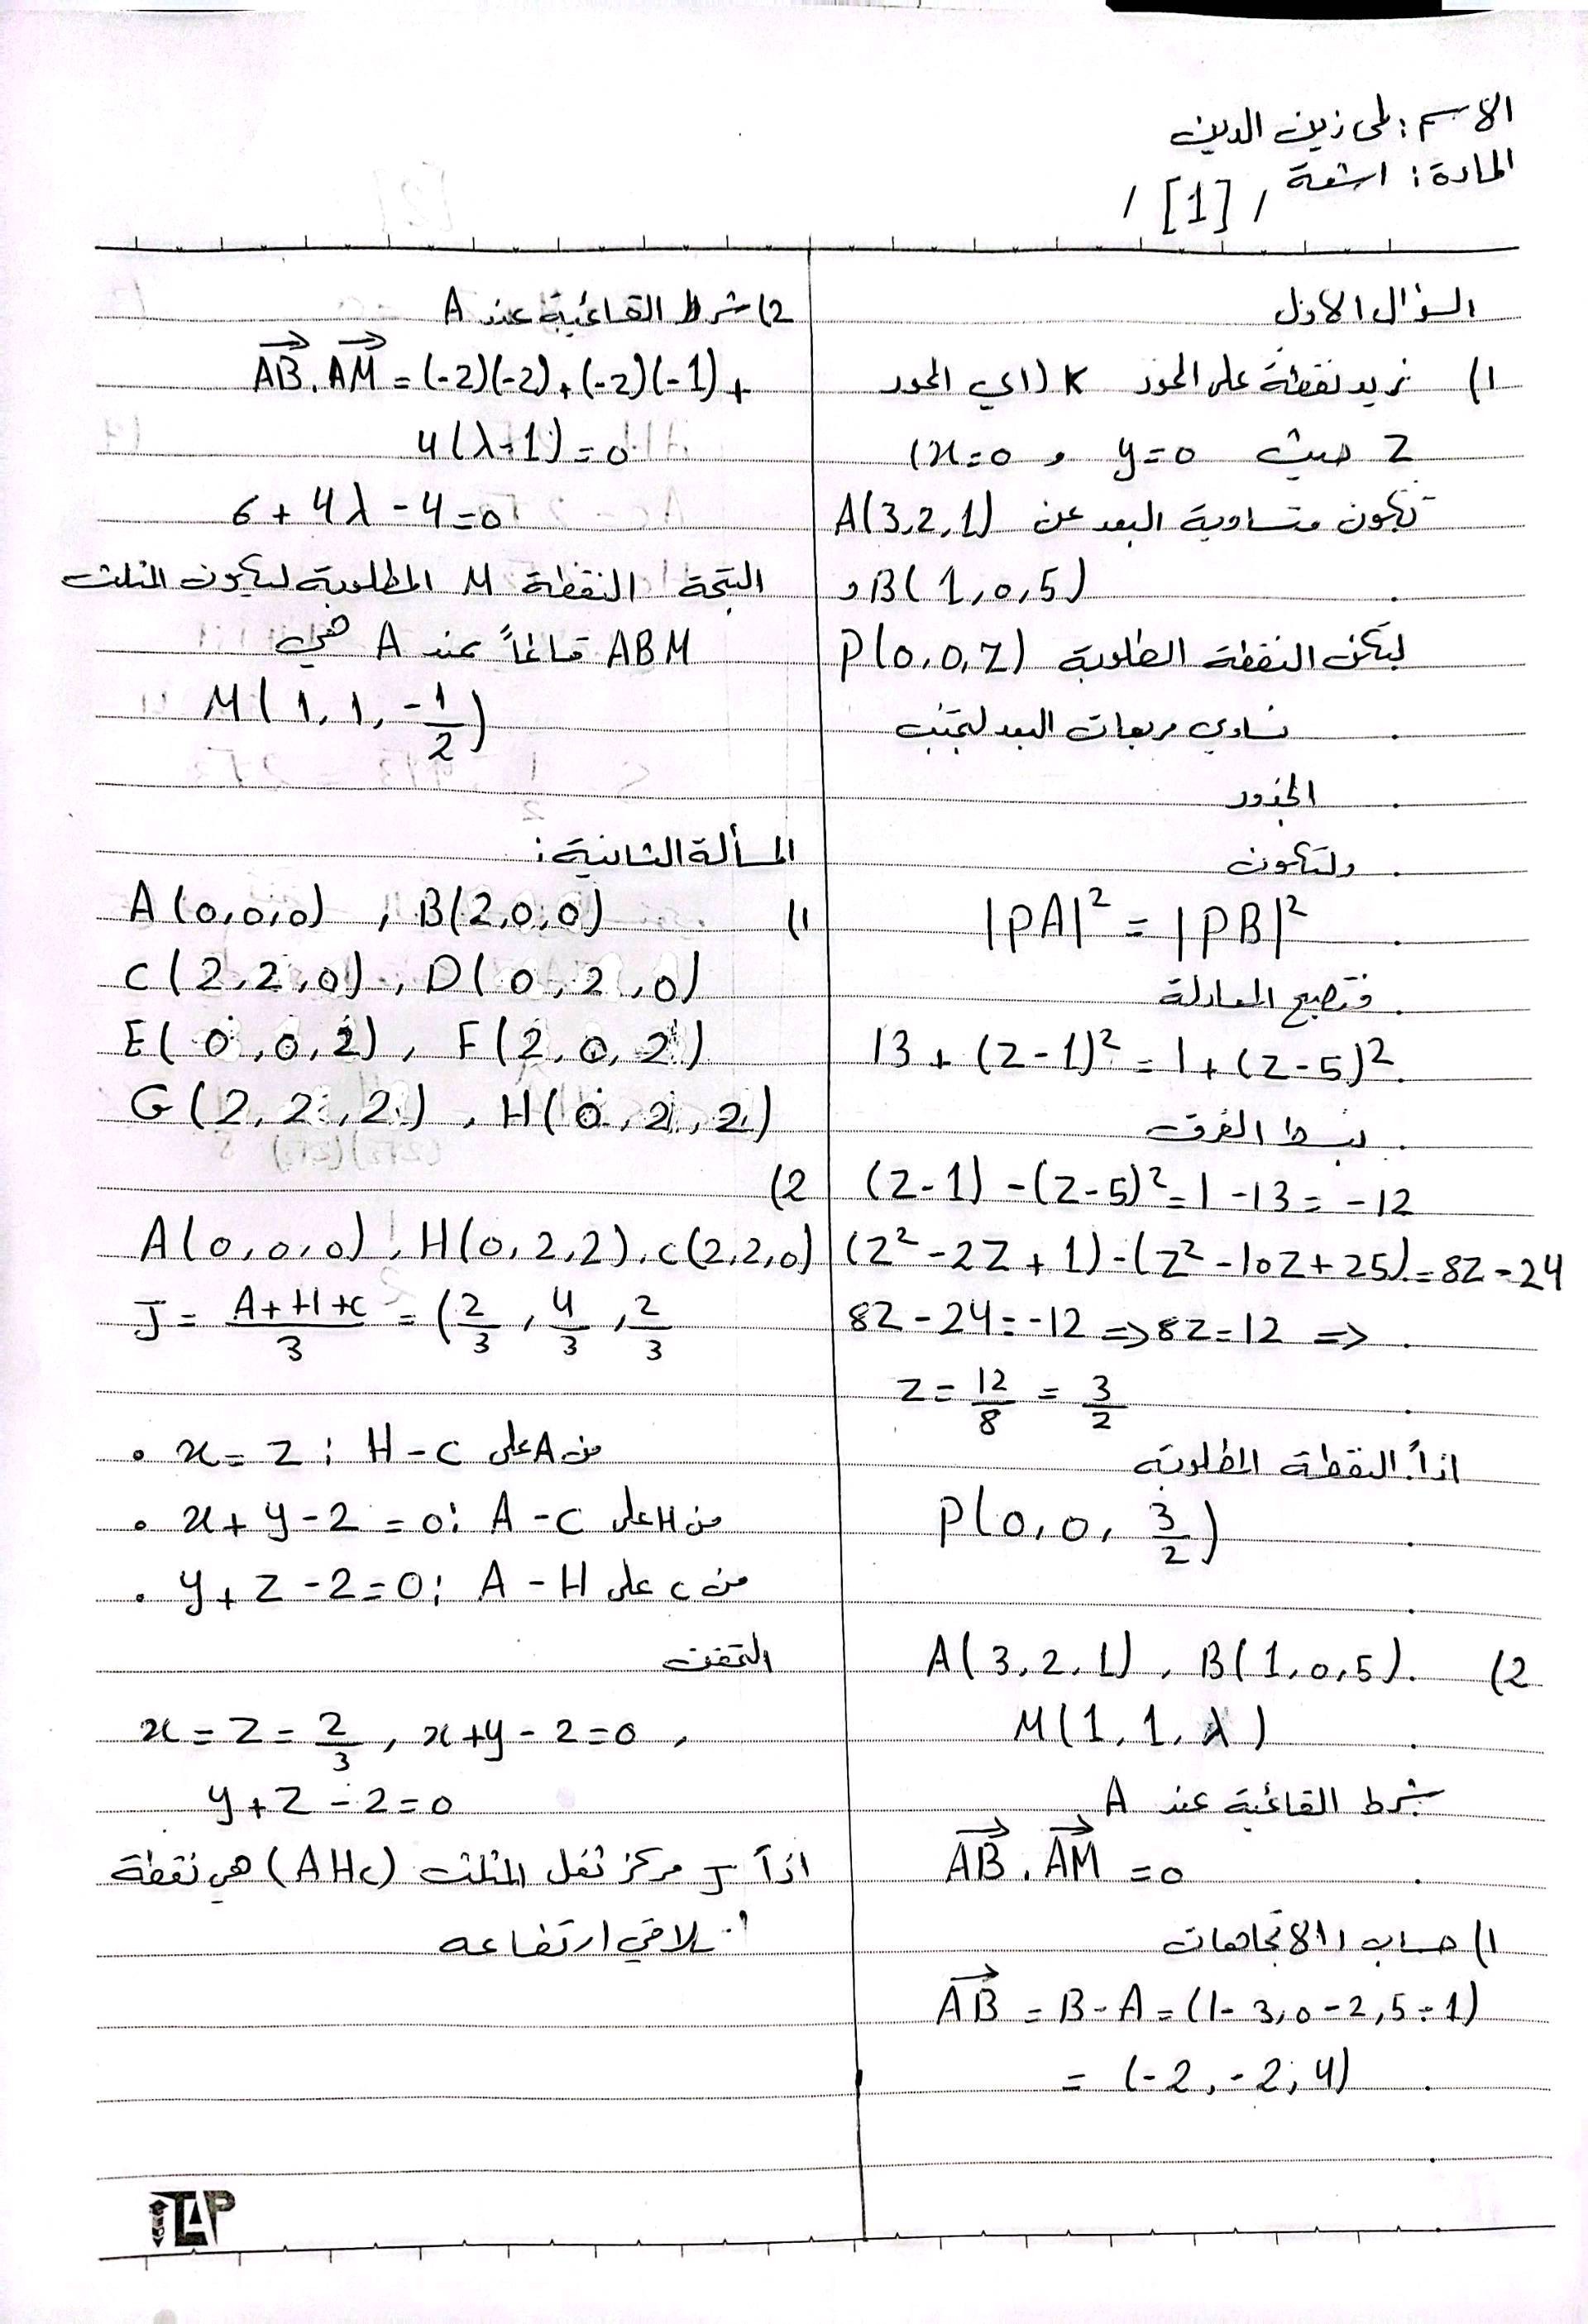 الاسم: لمى زين الدين
المادة: اشعة
/ [1] /
السؤال الاول
1) نريد نقطة على المحور K (اي المحور
Z حيث y=0 و x=0)
تكون متساوية البعد عن A(3,2,1)
و B(1,0,5)
لتكن النقطة المطلوبة P(0,0,Z)
نساوي مربعات البعد لتجنب
الجذور
ولتكون
|PA|² = |PB|²
فتصبح المعادلة
13 + (Z-1)² = 1 + (Z-5)²
نبسط الفرق
(Z-1) - (Z-5)² = 1 - 13 = -12
(Z² - 2Z + 1) - (Z² - 10Z + 25) = 8Z - 24
8Z - 24 = -12 => 8Z = 12 =>
Z = 12/8 = 3/2
اذاً النقطة المطلوبة
P(0, 0, 3/2)
2) A(3,2,1), B(1,0,5).
M(1,1,λ)
شرط القائمية عند A
AB . AM = 0
1) حساب الاتجاهات
AB = B - A = (1-3, 0-2, 5-1)
= (-2, -2, 4)
2) شرط القائمية عند A
AB . AM = (-2)(-2) + (-2)(-1) +
4(λ-1) = 0
6 + 4λ - 4 = 0
النتيجة النقطة M المطلوبة ليكون المثلث
ABM قائماً عند A هي
M(1, 1, -1/2)
المسألة الثانية:
1) A(0,0,0) , B(2,0,0)
C(2,2,0), D(0,2,0)
E(0,0,2), F(2,0,2)
G(2,2,2), H(0,2,2)
2)
A(0,0,0), H(0,2,2), C(2,2,0)
J = A+H+C/3 = (2/3, 4/3, 2/3
• x = z : H-C من A على
• x + y - 2 = 0 : A-C من H على
• y + z - 2 = 0 : A-H من C على
التحقق
x = z = 2/3 , x+y-2=0 ,
y + z - 2 = 0
اذاً J مركز ثقل المثلث (AHC) هي نقطة
تلاقي ارتفاعه
TAP